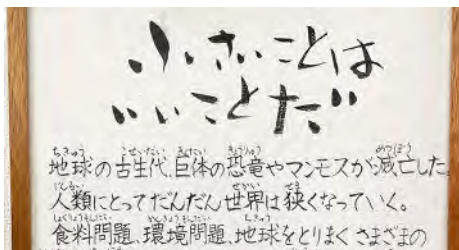 小さいことは
いいことだ
地球の古生代、巨体の恐竜やマンモスが滅亡した。
人類にとってだんだん世界は狭くなっていく。
食料問題、環境問題、地球をとりまくさまざまの